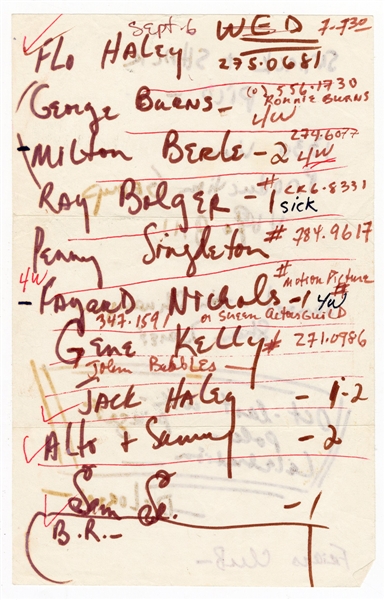 Sept. 6 WED 7-7:30
Flo HALEY 275.0681
George Burns - (o) 556.1730
Ronnie Burns
4/W
Milton Berle - 2 4/W 274.6077
Ray Bolger - 1 sick # CR6.8331
Penny Singleton # 784.9617
4/W
- Fayard Nichols - 1 4/W # Motion Picture #
347.1591 or Screen Actors Guild
Gene Kelly # 271.0986
John Bubbles
JACK HALEY - 1-2
Alto + Sammy - 2
Sam Sr. - 1
B.R. -